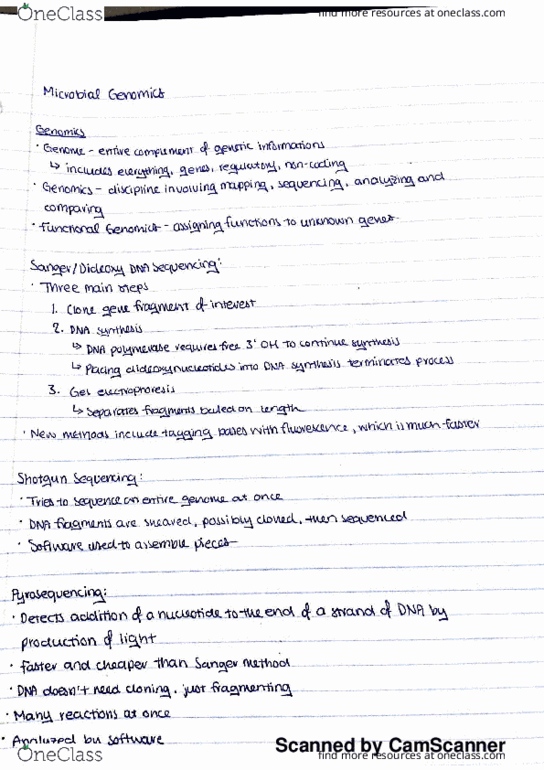 OneClass
find more resources at oneclass.com
Microbial Genomics
Genomics
· Genome - entire complement of genetic informations
↳ includes everything, genes, regulatory, non-coding
· Genomics - discipline involving mapping, sequencing, analyzing and
comparing
· Functional Genomics - assigning functions to unknown genes
Sanger/Dideoxy DNA Sequencing:
· Three main steps
1. Clone gene fragment of interest
2. DNA synthesis
↳ DNA polymerase requires free 3' OH to continue synthesis
↳ Placing dideoxynucleotides into DNA synthesis terminates process
3. Gel electrophoresis
↳ Separates fragments based on length
· New methods include tagging bases with fluorescence, which is much faster
Shotgun Sequencing:
· Tries to sequence an entire genome at once
· DNA fragments are sheared, possibly cloned, then sequenced
· Software used to assemble pieces
Pyrosequencing:
· Detects addition of a nucleotide to the end of a strand of DNA by
production of light
· faster and cheaper than Sanger method
· DNA doesn't need cloning, just fragmenting
· Many reactions at once
· Analyzed by software
Scanned by CamScanner
OneClass
find more resources at oneclass.com